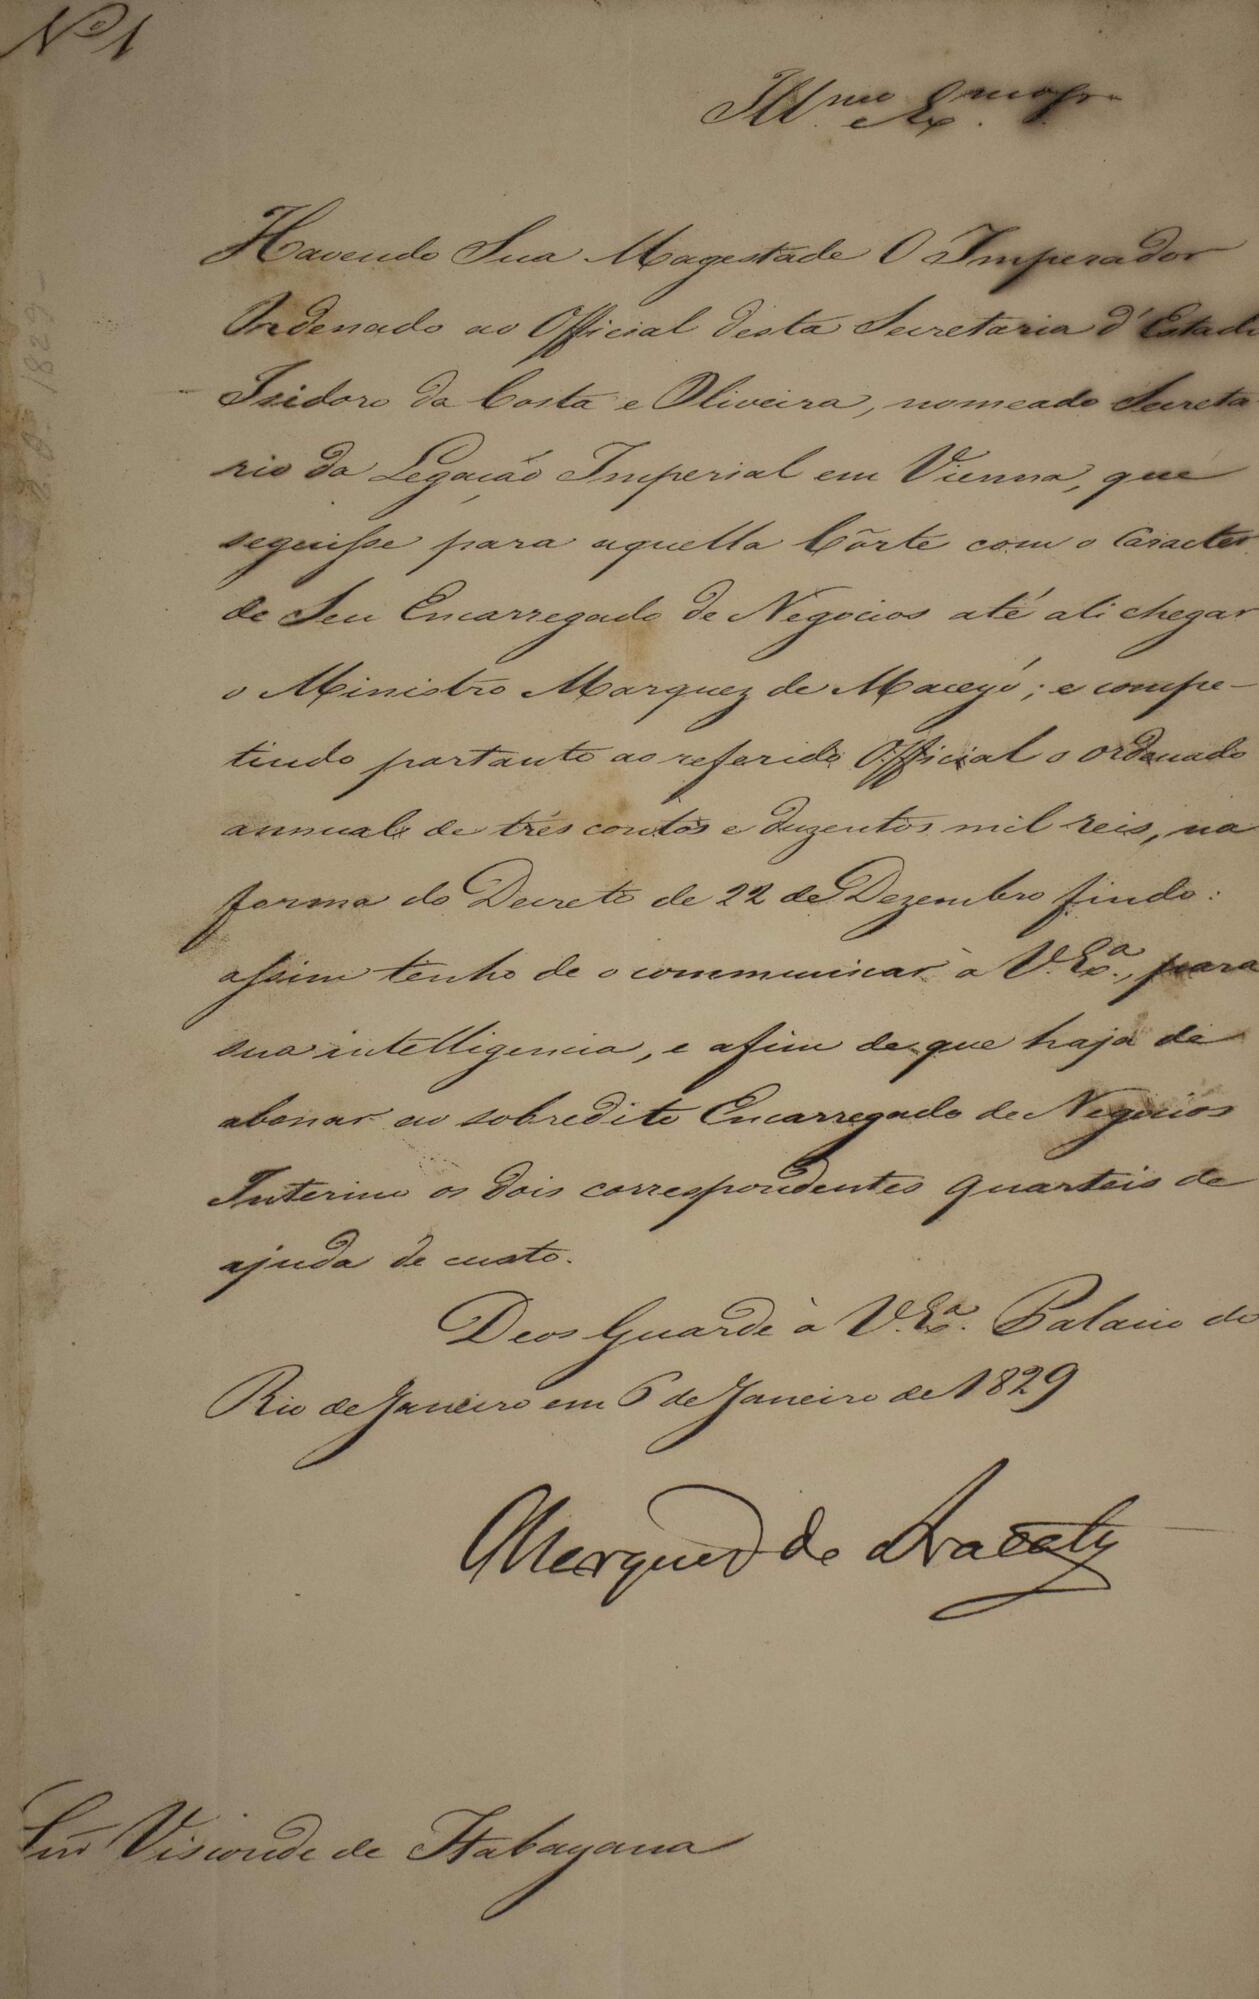 Nº 1
Ill.mo e Ex.mo Sr.
Havendo Sua Magestade O Imperador
Ordenado ao Official desta Secretaria d'Estado
Isidoro da Costa e Oliveira, nomeado Secreta
rio da Legação Imperial em Vienna, que
seguisse para aquella Côrte com o Caracter
de Seu Encarregado de Negocios até ali chegar
o Ministro Marquez de Maceyó; e compe-
tindo portanto ao referido Official o ordenado
annual de três contos e duzentos mil reis, na
forma do Decreto de 22 de Dezembro findo:
assim tenho de o communicar à V. Ex.ª, para
sua intelligencia, e afim de que haja de
abonar ao sobredito Encarregado de Negocios
Interino os dois correspondentes quarteis de
ajuda de custo.
Deos Guarde à V. Ex.ª. Palacio do
Rio de Janeiro em 6 de Janeiro de 1829
Marquez de Aracaty
Snr Visconde de Itabayana